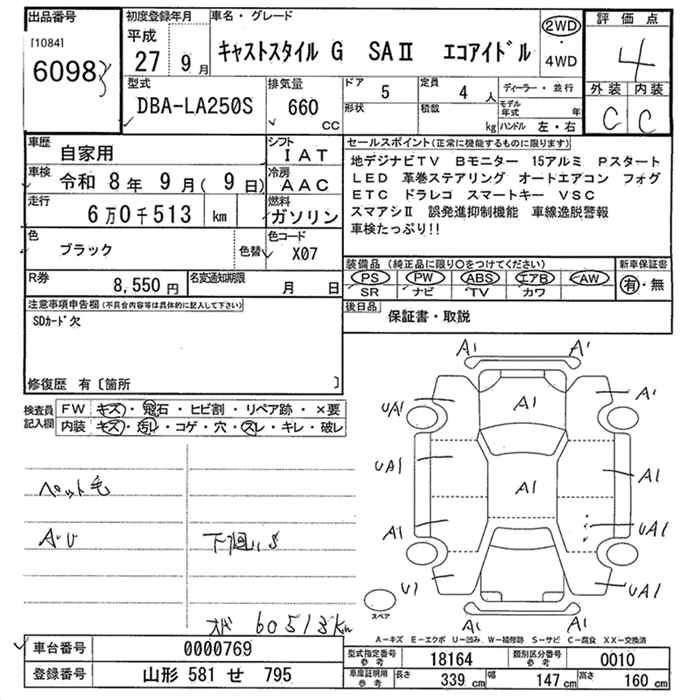 出品番号
[1084]
6098
初度登録年月
平成
27 9月
車名・グレード
キャストスタイル G SAⅡ エコアイドル
2WD
・
4WD
評価点
4
外装 内装
C C
型式
DBA-LA250S
排気量
660
cc
ドア 5
形状
定員 4 人
積載 kg
ディーラー・並行
モデル年式 年
ハンドル 左・右
車歴
自家用
シフト
IAT
車検 令和 8年 9月( 9日)
冷房
AAC
走行
6万0千513 km
燃料
ガソリン
色
ブラック
色替
色コード
X07
セールスポイント(正常に機能するものに限ります)
地デジナビTV Bモニター 15アルミ Pスタート
LED 革巻ステアリング オートエアコン フォグ
ETC ドラレコ スマートキー VSC
スマアシⅡ 誤発進抑制機能 車線逸脱警報
車検たっぷり!!
R券
8,550円
名変通知期限
月 日
装備品 (純正品に限り○をつけてください)
PS PW ABS エアB AW
SR ナビ TV カワ
新車保証書
有・無
注意事項申告欄(不具合内容等は具体的に記入して下さい)
SDカード欠
後日品
保証書・取説
修復歴 有〔箇所 〕
検査員
記入欄
FW キズ・飛石・ヒビ割・リペア跡・×要
内装 キズ・汚レ・コゲ・穴・スレ・キレ・破レ
ペット毛
A・U
下廻りS
60513km
A1 A1
UA1 A1 A1
UA1 A1 A1
A1 UA1
U1 UA1
A1 A1
スペア
A-キズ E-エクボ U-凹み W-補修跡 S-サビ C-腐食 XX-交換済
車台番号
0000769
登録番号
山形 581 せ 795
型式指定番号
参考
18164
類別区分番号
参考
0010
車庫証明用
参考
長さ 339 cm
幅 147 cm
高さ 160 cm